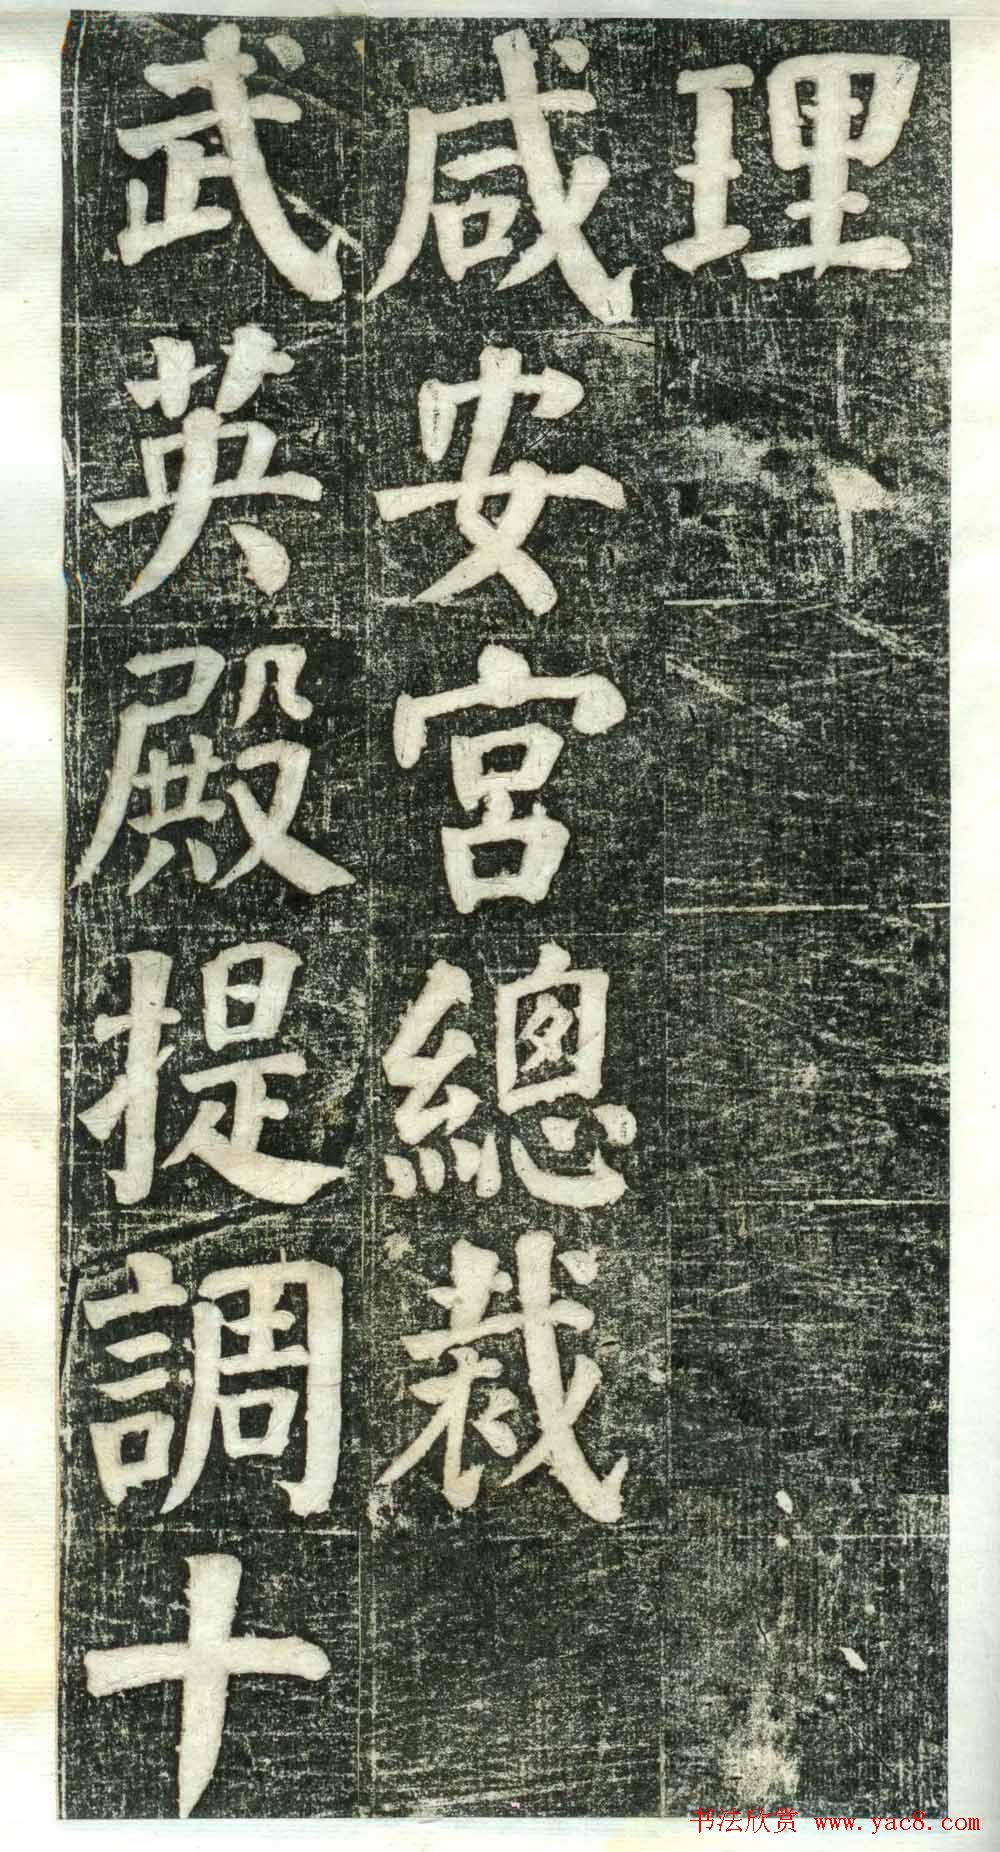 理
咸安宮總裁
武英殿提調十
书法欣赏 www.yac8.com